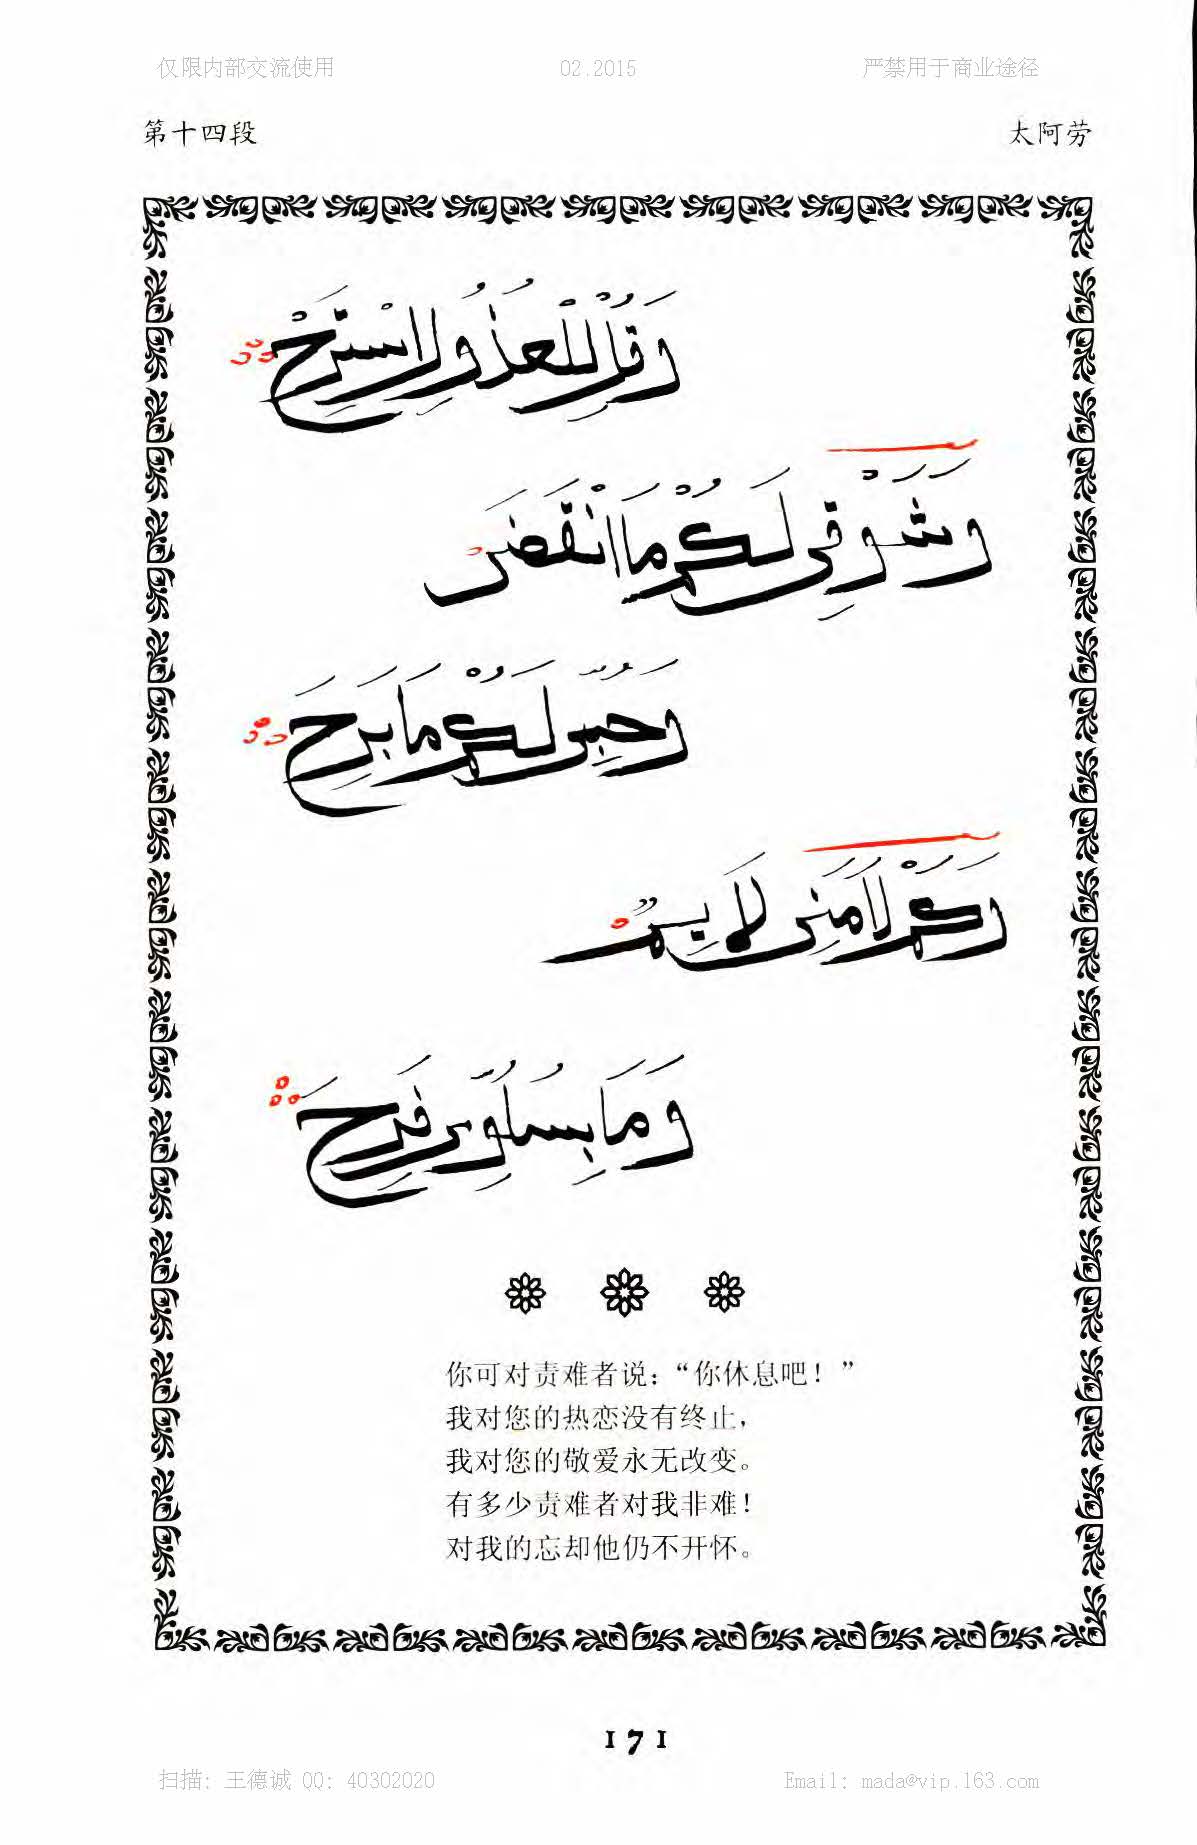 仅限内部交流使用 02.2015 严禁用于商业途径
第十四段 太阿劳
وَقُلْ لِلْعَذُولِ اسْتَرِحْ
وَشَوْقِي لَكُمْ مَا انْقَضَى
وَحُبِّي لَكُمْ مَا بَرِحَ
وَكَمْ لَامَنِي لَائِمٌ
وَمَا بِسُلُوِّي فَرِحَ
你可对责难者说：“你休息吧！”
我对您的热恋没有终止，
我对您的敬爱永无改变。
有多少责难者对我非难！
对我的忘却他仍不开怀。
171
扫描: 王德诚 QQ: 40302020 Email: mada@vip.163.com